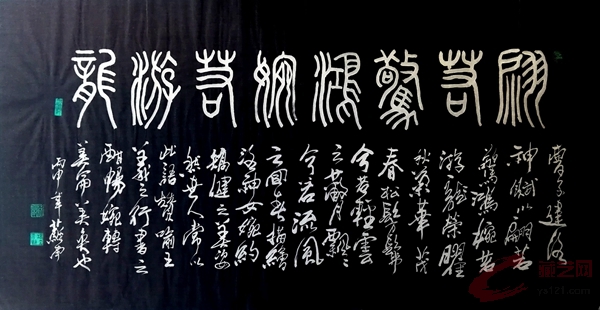 翩若驚鴻婉若游龍
曹子建洛
神賦以翩若
驚鴻婉若
游龍榮曜
秋菊華茂
春松髣髴
兮若輕雲
之蔽月飄飄
兮若流風
之回雪描繪
洛神女婉約
矯健之美姿
然世人常以
此語贊喻王
羲之行書之
酣暢婉轉
美侖美奐也
丙申年燕南
藏艺网
ys121.com